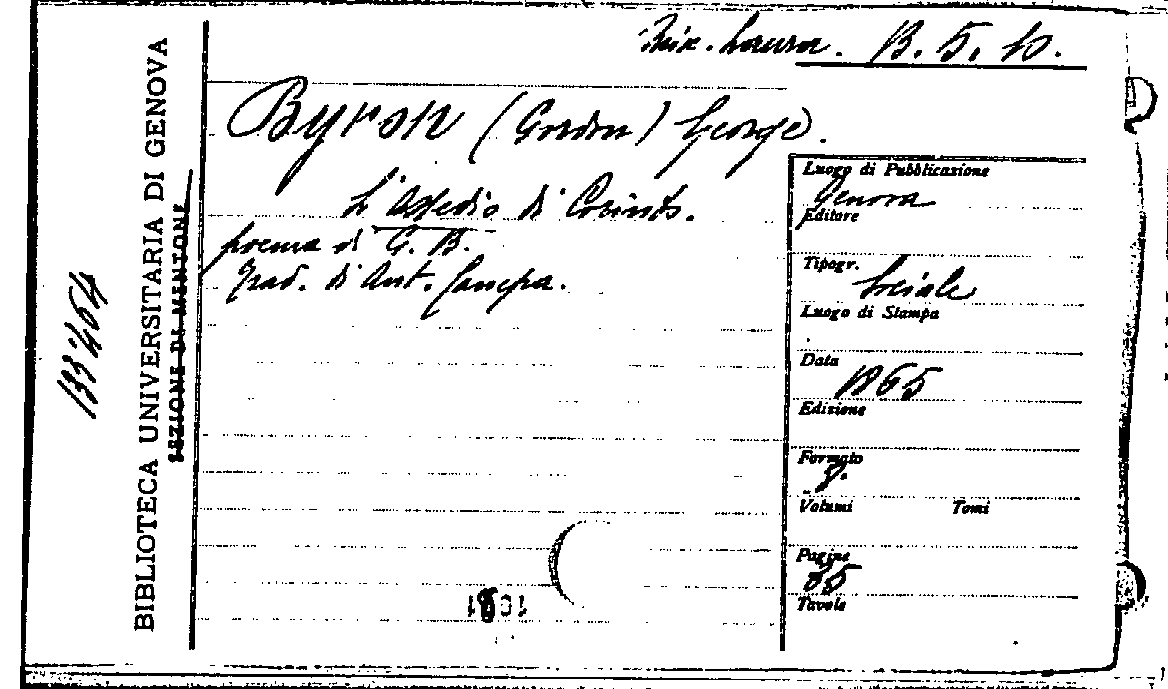 Laura. B. 5. 10.
Byron (Gordon) George.
L'Assedio di Corinto.
poema di G. B.
Trad. di Ant. Canepa.
Luogo di Pubblicazione
Genova
Editore
Tipogr.
Sociale
Luogo di Stampa
Data
1865
Edizione
Formato
8.
Volumi Tomi
Pagine
85
Tavole
BIBLIOTECA UNIVERSITARIA DI GENOVA
SEZIONE DI MENTONE